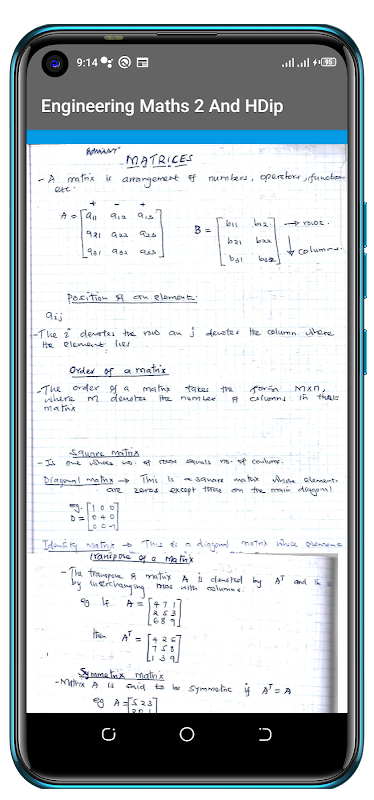 9:14
95
Engineering Maths 2 And HDip
MATRICES
- A matrix is arrangement of numbers, operators, function
etc.
+ - +
A = [a11 a12 a13
a21 a22 a23
a31 a32 a33]
B = [b11 b12
b21 b22
b31 b32]
→ rows.
↓ columns.
Position of an element.
aij
- The i denotes the row an j denotes the column where
the element lies
Order of a matrix
- The order of a matrix takes the form MXn,
where M denotes the number of columns in that
matrix
Square matrix
- Is one whose no. of rows equals no. of coulums.
Diagonal matrix → This is a square matrix whose element
are zeros except those on the main diagonal
eg. D = [1 0 0
0 4 0
0 0 -1]
Identity matrix → This is a diagonal matrix whose elements
Transpose of a Matrix
- The transpose of matrix A is denoted by A^T and
by interchanging rows with columns.
eg If A = [4 7 1
2 5 3
6 8 9]
then A^T = [4 2 6
7 5 8
1 3 9]
Symmetrix matrix
- Matrix A is said to be symmetric if A^T = A
eg A = [5 2 3